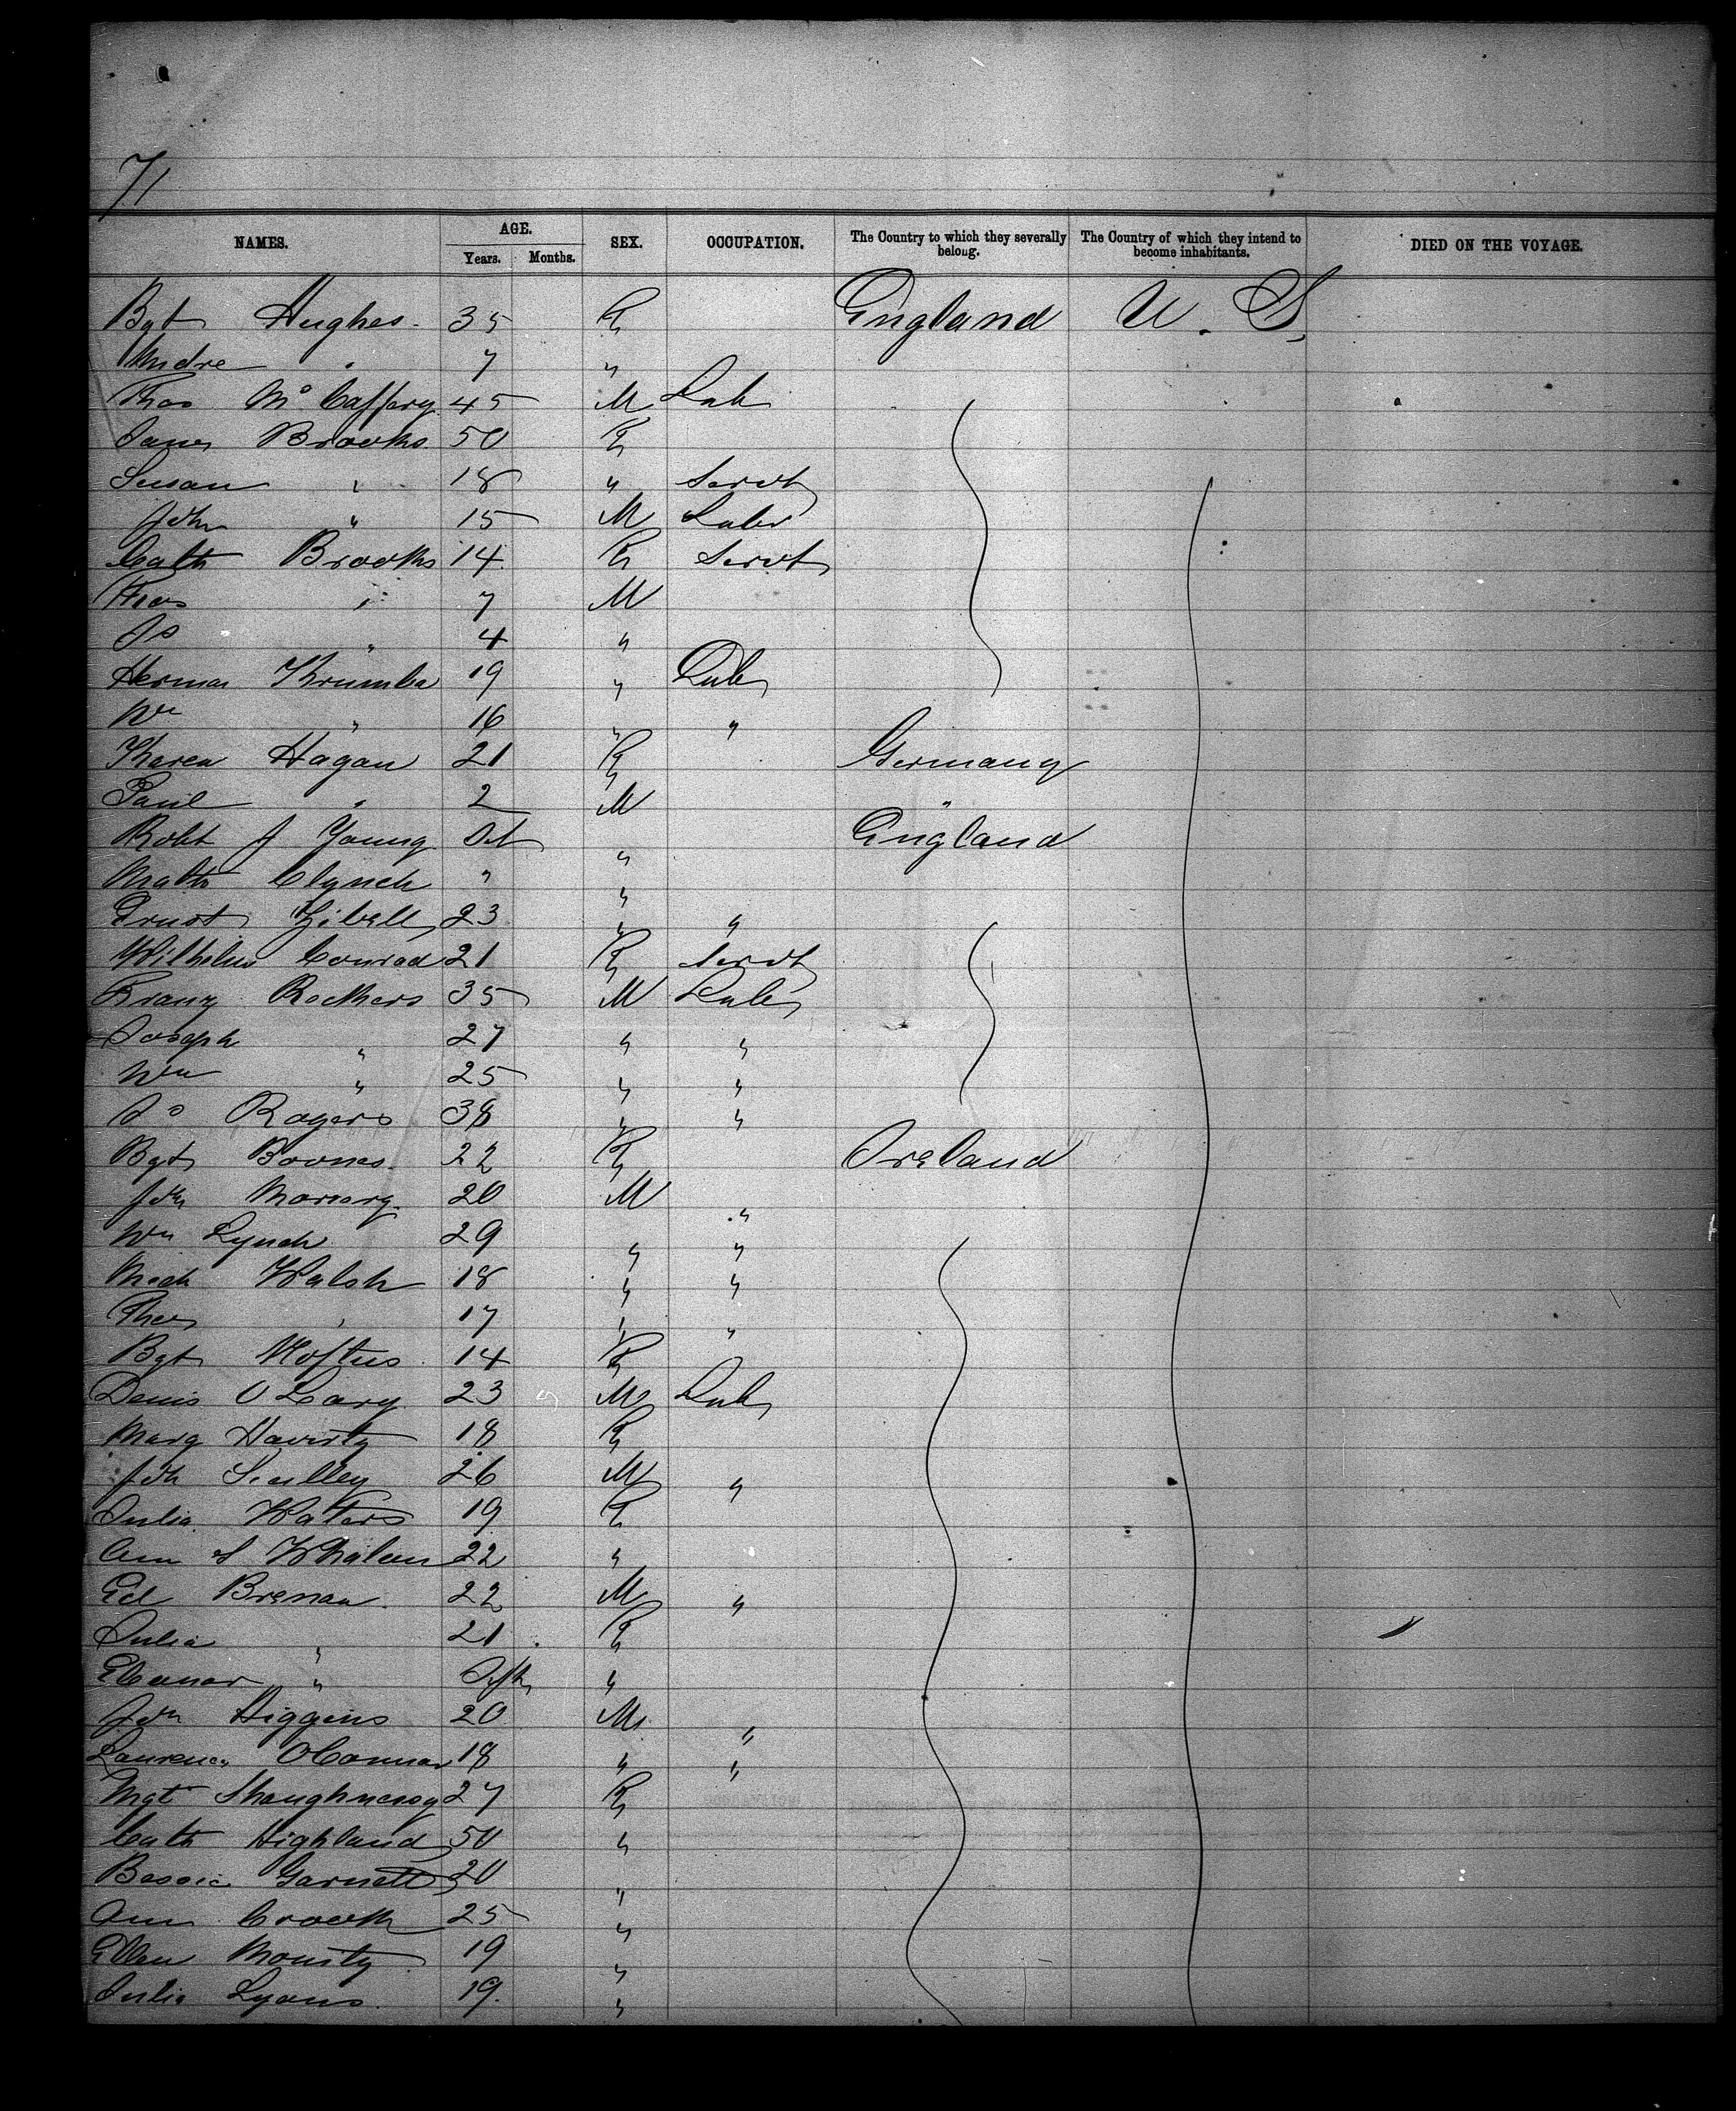 71
NAMES. AGE. Years. Months. SEX. OCCUPATION. The Country to which they severally belong. The Country of which they intend to become inhabitants. DIED ON THE VOYAGE.
Bgt Hughes 35 F England U.S.
Andre " 7 "
Thos McCaffery 45 M Lab
James Brooks 50 F
Susan " 18 " Servt
John " 15 M Labr
Cath Brooks 14 F Servt
Thos " 7 M
Js " 4 "
Herman Krumba 19 " Lab
Wm " 16 " "
Karen Hagan 21 F Germany
Paul " 2 M "
Robt J Young " England
Math Clynch " "
Ernst 23 " "
Wilhelm Conrad 21 F Servt
Franz Rockers 35 M Lab
Joseph " 27 " "
Wm " 25 " "
Js Rogers 38 " "
Bgt 22 F Ireland
Jdn 20 M "
Wm Lynch 29 " "
Mich Walsh 18 " "
Thos " 17 " "
Bgt 14 F
Denis O Leary 23 M Lab
Marg Haverty 18 F
Jdn Sculley 26 M "
Julia Waters 19 F
Ann Whalan 22 "
Ed Brenan 22 M "
Julia " 21 F
Eleanor " "
Jdn Higgins 20 M "
Laurence OConnor 18 " "
Mgt Shaughnessy 27 F
Cath Highland 50 "
Bessie Garnett 20 "
Ann 25 "
Ellen 19 "
Julia Lyons 19 "